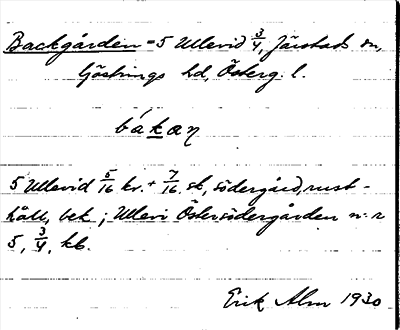 Backgården = 5 Ullevid 3/4, Järstads sn,
Göstrings hd, Österg. l.
bákaɳ
5 Ullevid 5/16 kr. + 7/16 sk, södergård, rust-
håll, bek; Ullevi Östersödergården n:r
5, 3/4, kb.
Erik Alm 1930